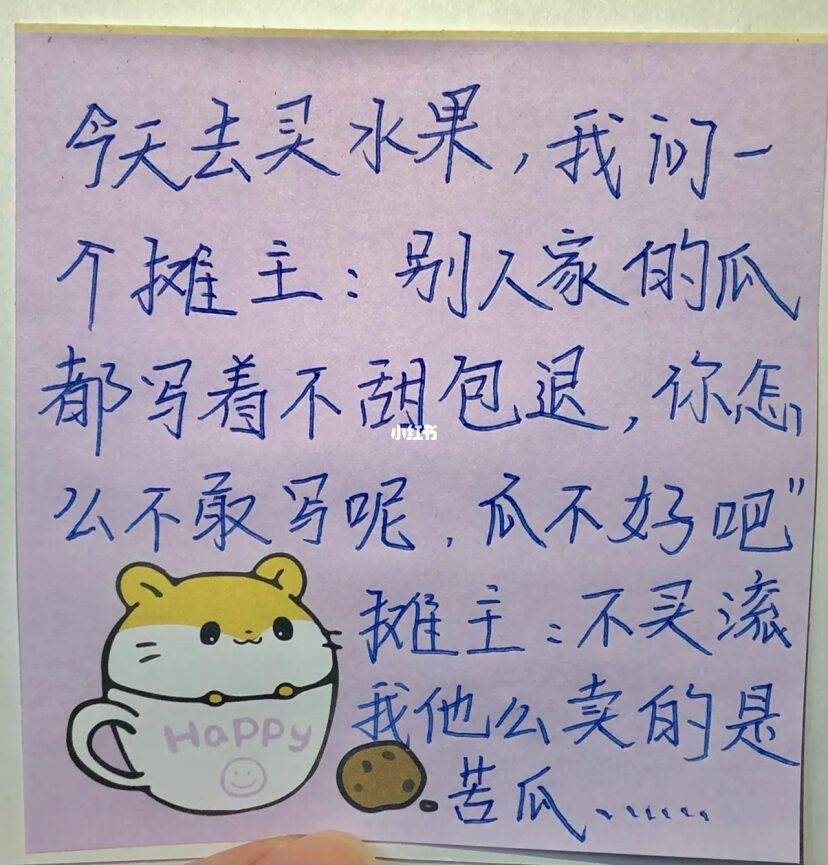 今天去买水果，我问一
个摊主：别人家的瓜
都写着不甜包退，你怎
么不敢写呢，瓜不好吧”
小红书
摊主：不买滚
我他么卖的是
苦瓜......
HaPPy